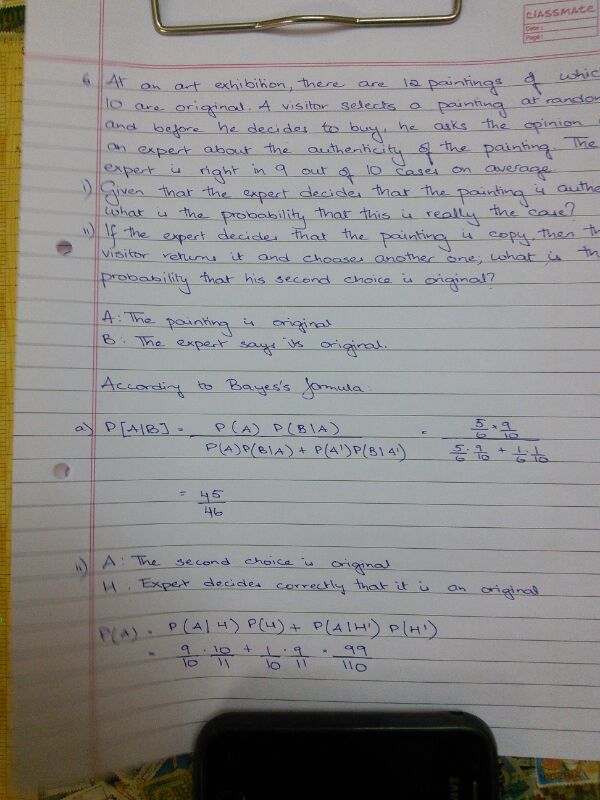 CLASSMATE
Date :
Page :
6 At an art exhibition, there are 12 paintings of which
10 are original. A visitor selects a painting at random
and before he decides to buy, he asks the opinion
an expert about the authenticity of the painting. The
expert is right in 9 out of 10 cases on average
i) Given that the expert decides that the painting is authe
what is the probability that this is really the case?
ii) If the expert decides that the painting is copy, then th
visitor returns it and chooses another one, what is th
probability that his second choice is original?
A: The painting is original
B: The expert says its original.
According to Bayes's formula:
a) P[A|B] = P(A) P(B|A) / P(A)P(B|A) + P(A')P(B|A') = 5/6 × 9/10 / 5/6 . 9/10 + 1/6 . 1/10
= 45/46
ii) A: The second choice is original
H. Expert decides correctly that it is an original
P(A) = P(A|H) P(H) + P(A|H') P(H')
= 9/10 . 10/11 + 1/10 . 9/11 = 99/110
SAMSUNG